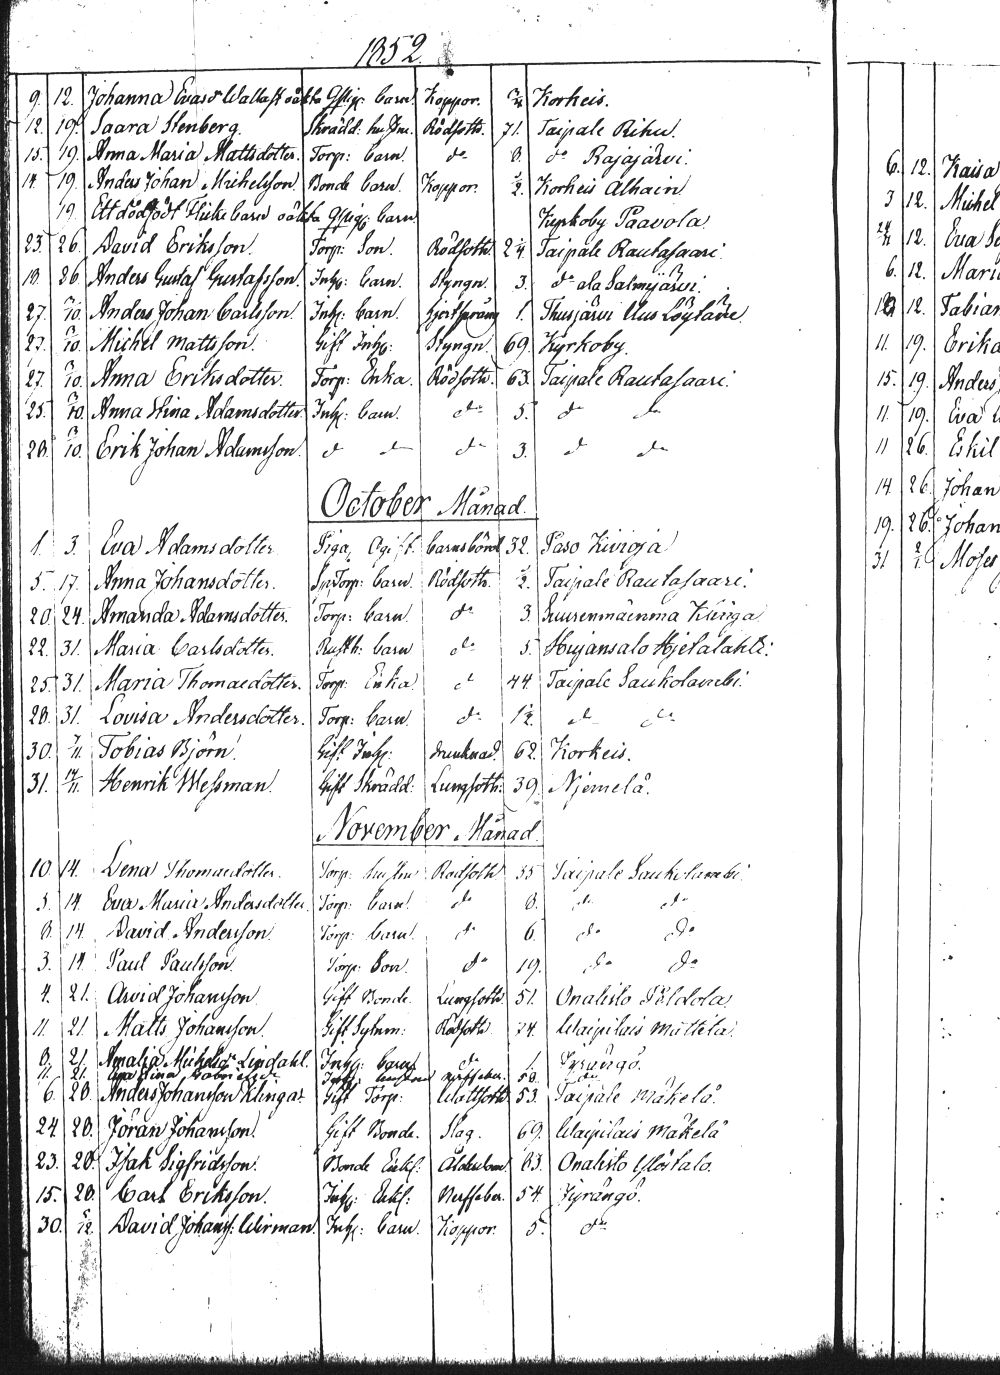 1852.
9. 12. Johanna Evasdr Wallast oäkta Qspig: barn. Koppor. Korkeis.
12. 19. Saara Stenberg. Skrädd: hustru. Rödsoth. 71. Taipale Riku.
15. 19. Anna Maria Mattsdotter. Torp: barn. do 8. do Rajajärvi.
14. 19. Anders Johan Michelsson. Bonde barn. Koppor. 1/2. Korkeis Alhain
19. Ett dödfödt Flicke barn oäkta Qspig: barn Kyrkoby Paavola
23. 26. David Eriksson. Torp: Son. Rödsoth. 2 1/4. Taipale Rautasaari.
18. 26. Anders Gustaf Gustafsson. Inh: barn. Styngn. 3. do ala Salmijärvi.
27. 3/10. Anders Johan Carlsson. Inh: barn. hjertspräng 1. Ihusjärvi Uus Löytäne.
27. 3/10. Michel Mattsson. Gift Inh: Styngn. 69. Kyrkoby.
27. 3/10. Anna Eriksdotter. Torp: Enka. Rödsoth. 63. Taipale Rautasaari.
25. 3/10. Anna Stina Adamsdotter. Inh: barn. do 5. do do
28. 3/10. Erik Johan Adamsson. do do do 3. do do
October Månad.
1. 3. Eva Adamsdotter. Piga, Ogift. barnsbörd 32. Paso Kivioja
5. 17. Anna Johansdotter. Torp: barn. Rödsoth. 1/2. Taipale Rautasaari.
20. 24. Amanda Adamsdotter. Torp: barn. do 3. Suurenmäenmä Klinga
22. 31. Maria Carlsdotter. Rusth: barn. do 5. Hujansalo Hjetalahti.
25. 31. Maria Thomaedotter. Torp: Enka. do 44. Taipale Saukolambi.
28. 31. Lovisa Andersdotter. Torp: barn. do 1 1/2. do do
30. 7/11. Tobias Björn. Gift Inh: drunknad. 62. Korkeis.
31. 14/11. Henrik Wessman. Gift Skrädd: Lungsoth. 39. Njemelä.
November Månad.
10. 14. Lena Thomaedotter. Torp: hustru Rödsoth 55 Taipale Saukolambi
5. 14. Eva Maria Andersdotter. Torp: barn. do 8. do do
8. 14. David Andersson. Torp: barn. do 6. do do
3. 14. Paul Paulsson. Torp: Son. do 19. do do
4. 21. Arvid Johansson. Gift Bonde. Lungsoth. 51. Onalisto Pöldola
11. 21. Matts Johansson. Gift Sytnm: Rödsoth. 74. Waipilais Mattela.
8. 21. Amalia Michelsdr Lindahl. Inh: barn. do 1. Jyrängö.
11. 21. Eva Stina Gabrielsdr Inh: hustru nerffeber. 58. do
6. 28. Anders Johansson Klinga. Gift Torp: Wattsoth. 53. Taipale Mäkelä.
24. 28. Jöran Johansson. Gift Bonde. Slag. 69. Waipilais Mäkelä
23. 28. Isak Sigfridsson. Bonde Enkl: Ålderdom. 83. Onalisto Ylöstalo.
15. 28. Carl Eriksson. Inh: Enkl: Nerffeber. 54. Jyrängö.
30. 5/12. David Johanss: Wirman. Inh: barn. Koppor. 5. do
6. 12. Kaisa
3 12. Michel
12. Eva
6. 12. Maria
12. Tabian
11. 19. Erika
15. 19. Anders
11. 19. Eva
11 26. Eskil
14. 26. Johan
19. 26. Johan
31 2/1. Moses